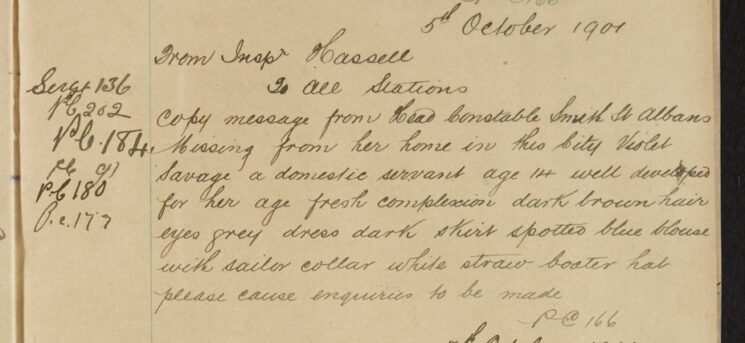 5th October 1901
From Inspr Hassell
To All Stations
Sergt 136
PC 202
PC. 184.
PC 91
P.C 180
P.c. 177
Copy message from Head Constable Smith St Albans
Missing from her home in this City Violet
Savage a domestic servant age 14 well developed
for her age fresh complexion dark brown hair
eyes grey dress dark skirt spotted blue blouse
with sailor collar white straw boater hat
please cause enquiries to be made
PC 166